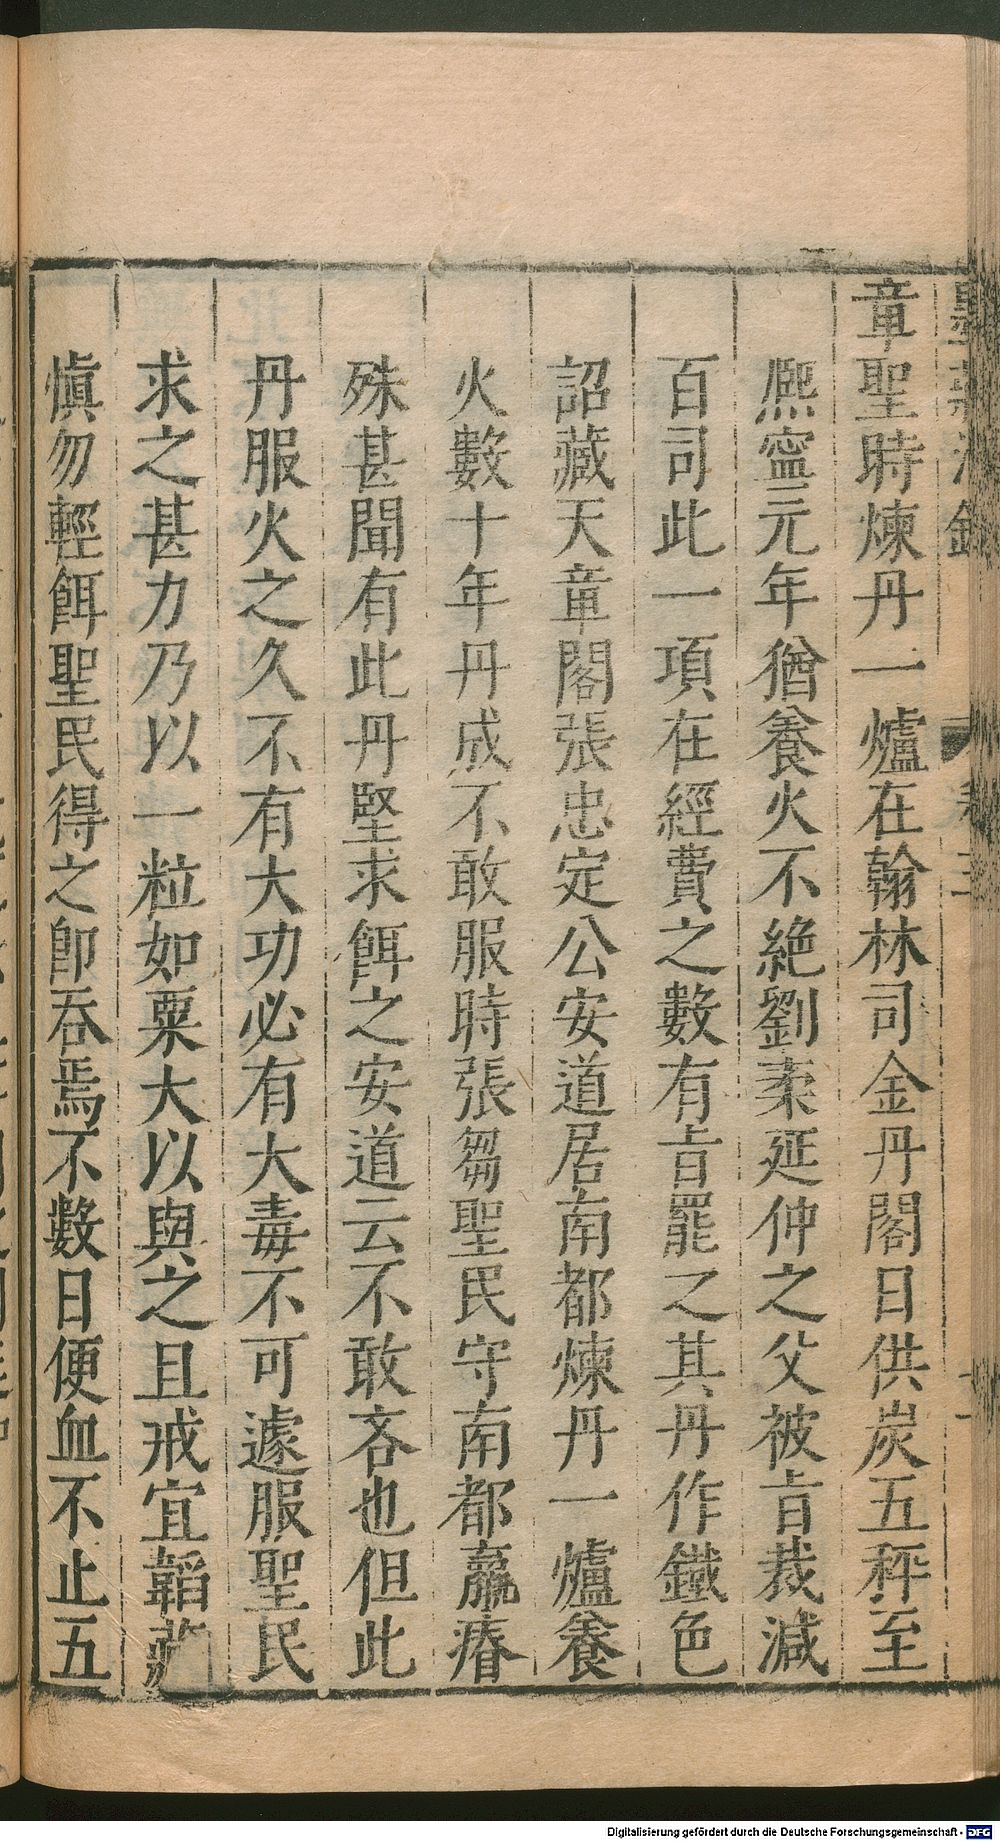 章聖時煉丹一爐在翰林司金丹閣日供炭五秤至
熈寧元年猶養火不絶劉袤延仲之父被㫖裁減
百司此一項在經費之數有㫖罷之其丹作鐵色
詔藏天章閣張忠定公安道居南都煉丹一爐養
火數十年丹成不敢服時張芻聖民守南都羸瘠
殊甚聞有此丹堅求餌之安道云不敢吝也但此
丹服火之久不有大功必有大毒不可遽服聖民
求之甚力乃以一粒如粟大以與之且戒宜韜藏
慎勿輕餌聖民得之即吞焉不數日便血不止五
Digitalisierung gefördert durch die Deutsche Forschungsgemeinschaft - DFG